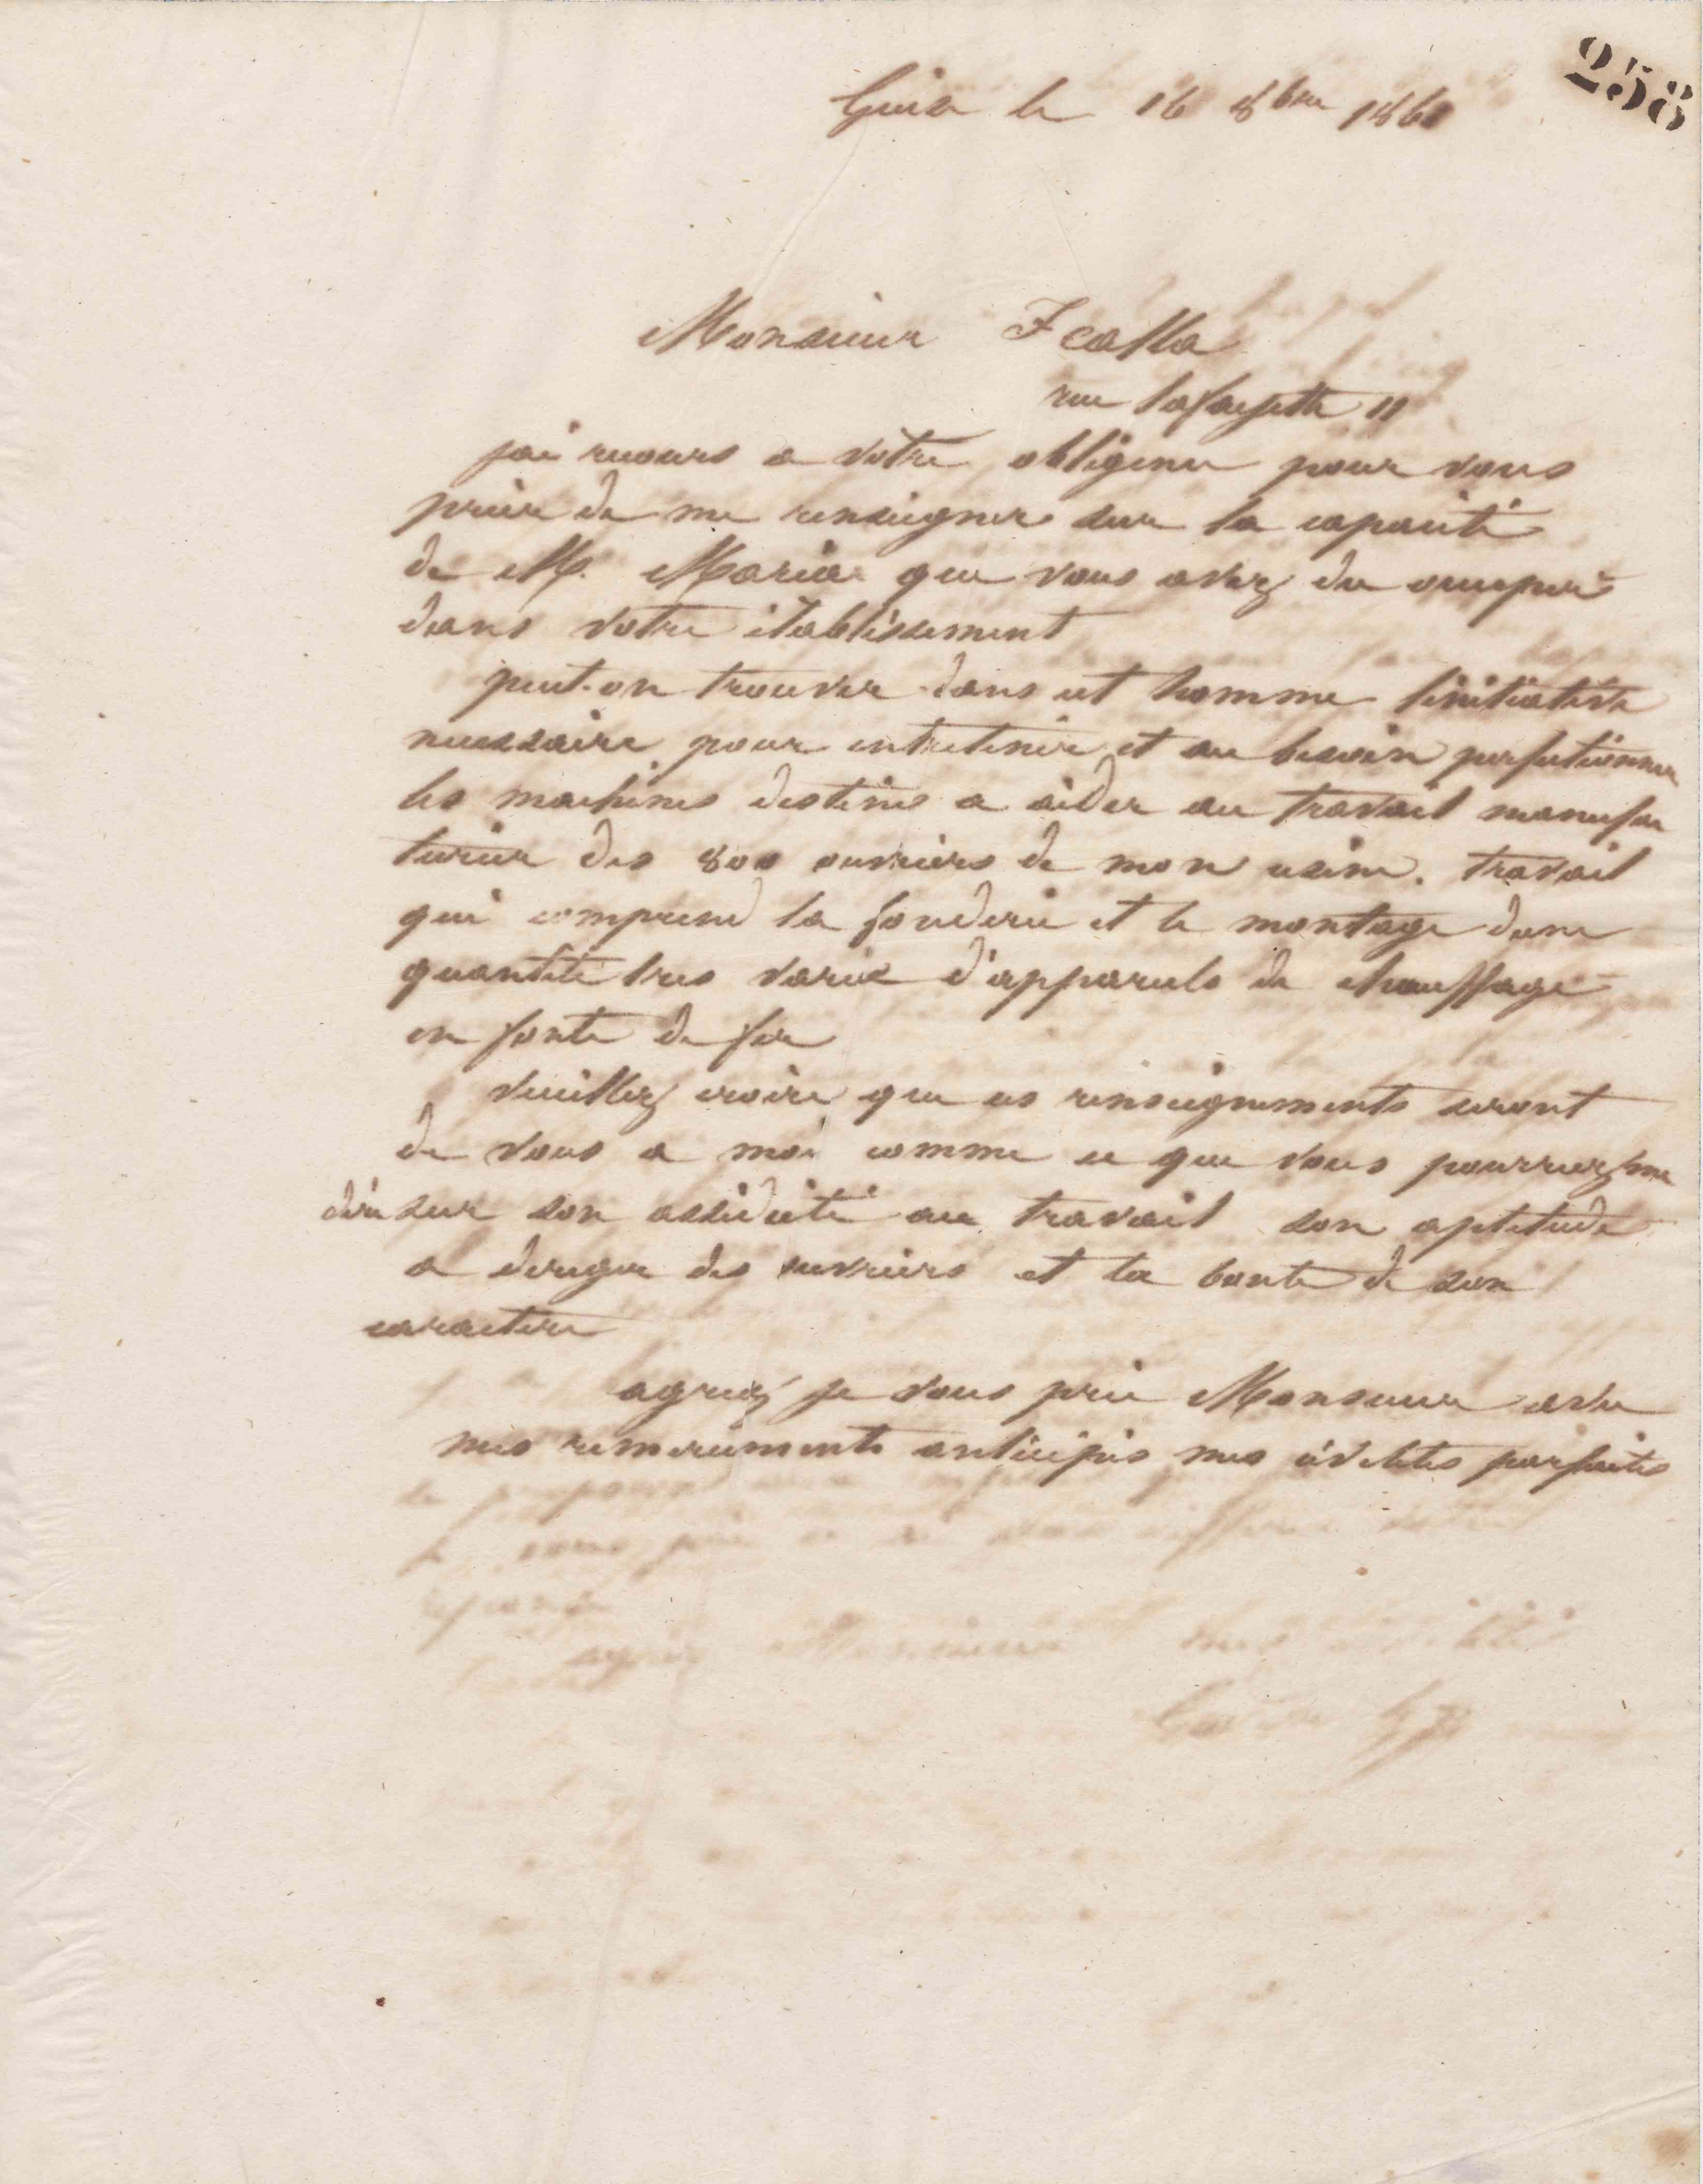 258
Guise le 16 8bre 186
Monsieur F Calla
rue lafayette 11
jai recours a votre obligence pour vous
prier de me renseigner sur la capacité
de M. Maria que vous avez du occuper
dans votre établissement
peut-on trouver dans cet homme linitiative
necessaire pour entretenir et au besoin perfectionner
les machines destines a aider au travail manufac
turier des 800 ouvriers de mon usine. travail
qui comprend la fonderie et le montage dune
quantité tres variee d'appareils de chauffage
en fonte de fer
Veuillez croire que ces renseignements seront
de vous a moi comme ce que vous pourriez me
dire sur son assiduité au travail son aptitude
a diriger des ouvriers et la bonté de son
caractere
agreez je vous prie Monsieur avec
mes remerciements anticipés mes civilités parfaites